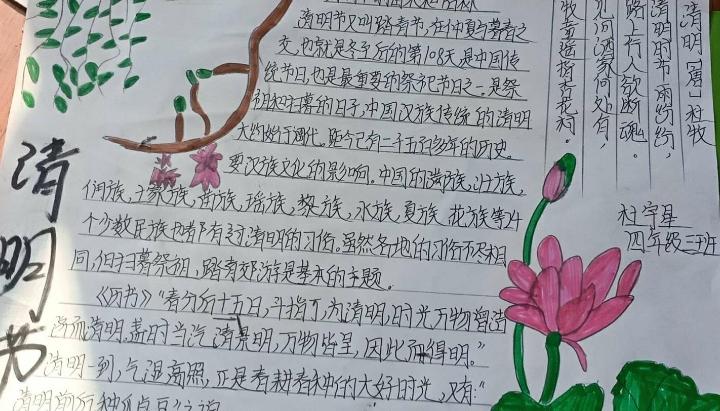 清明节又叫踏青节,在仲夏与暮春之
交,也就是冬至后的第108天,是中国传
统节日,也是最重要的祭祀节日之一,是祭
祖和扫墓的日子,中国汉族传统的清明
大约始于周代。距今已有二千五百多年的历史。
受汉族文化的影响。中国的满族,壮族,
侗族,土家族,苗族,瑶族,黎族,水族,夏族 花族等24
个少数民族也都有过清明的习俗。虽然各地的习俗不尽相
同,但扫墓祭祖,踏青郊游是基本的主题。
《历书》"春分后十五日,斗指丁,为清明,时 万物皆洁
而清明,盖时当汽清景明,万物皆呈,因此而得明。"
清明一到,气温高照,正是春耕春种的大好时光,又有:"
清明前后种瓜点豆"之说
清明 唐 杜牧
清明时节雨纷纷,
路上行人欲断魂。
借问酒家何处有,
牧童遥指杏花村。
清明节
四年级三班